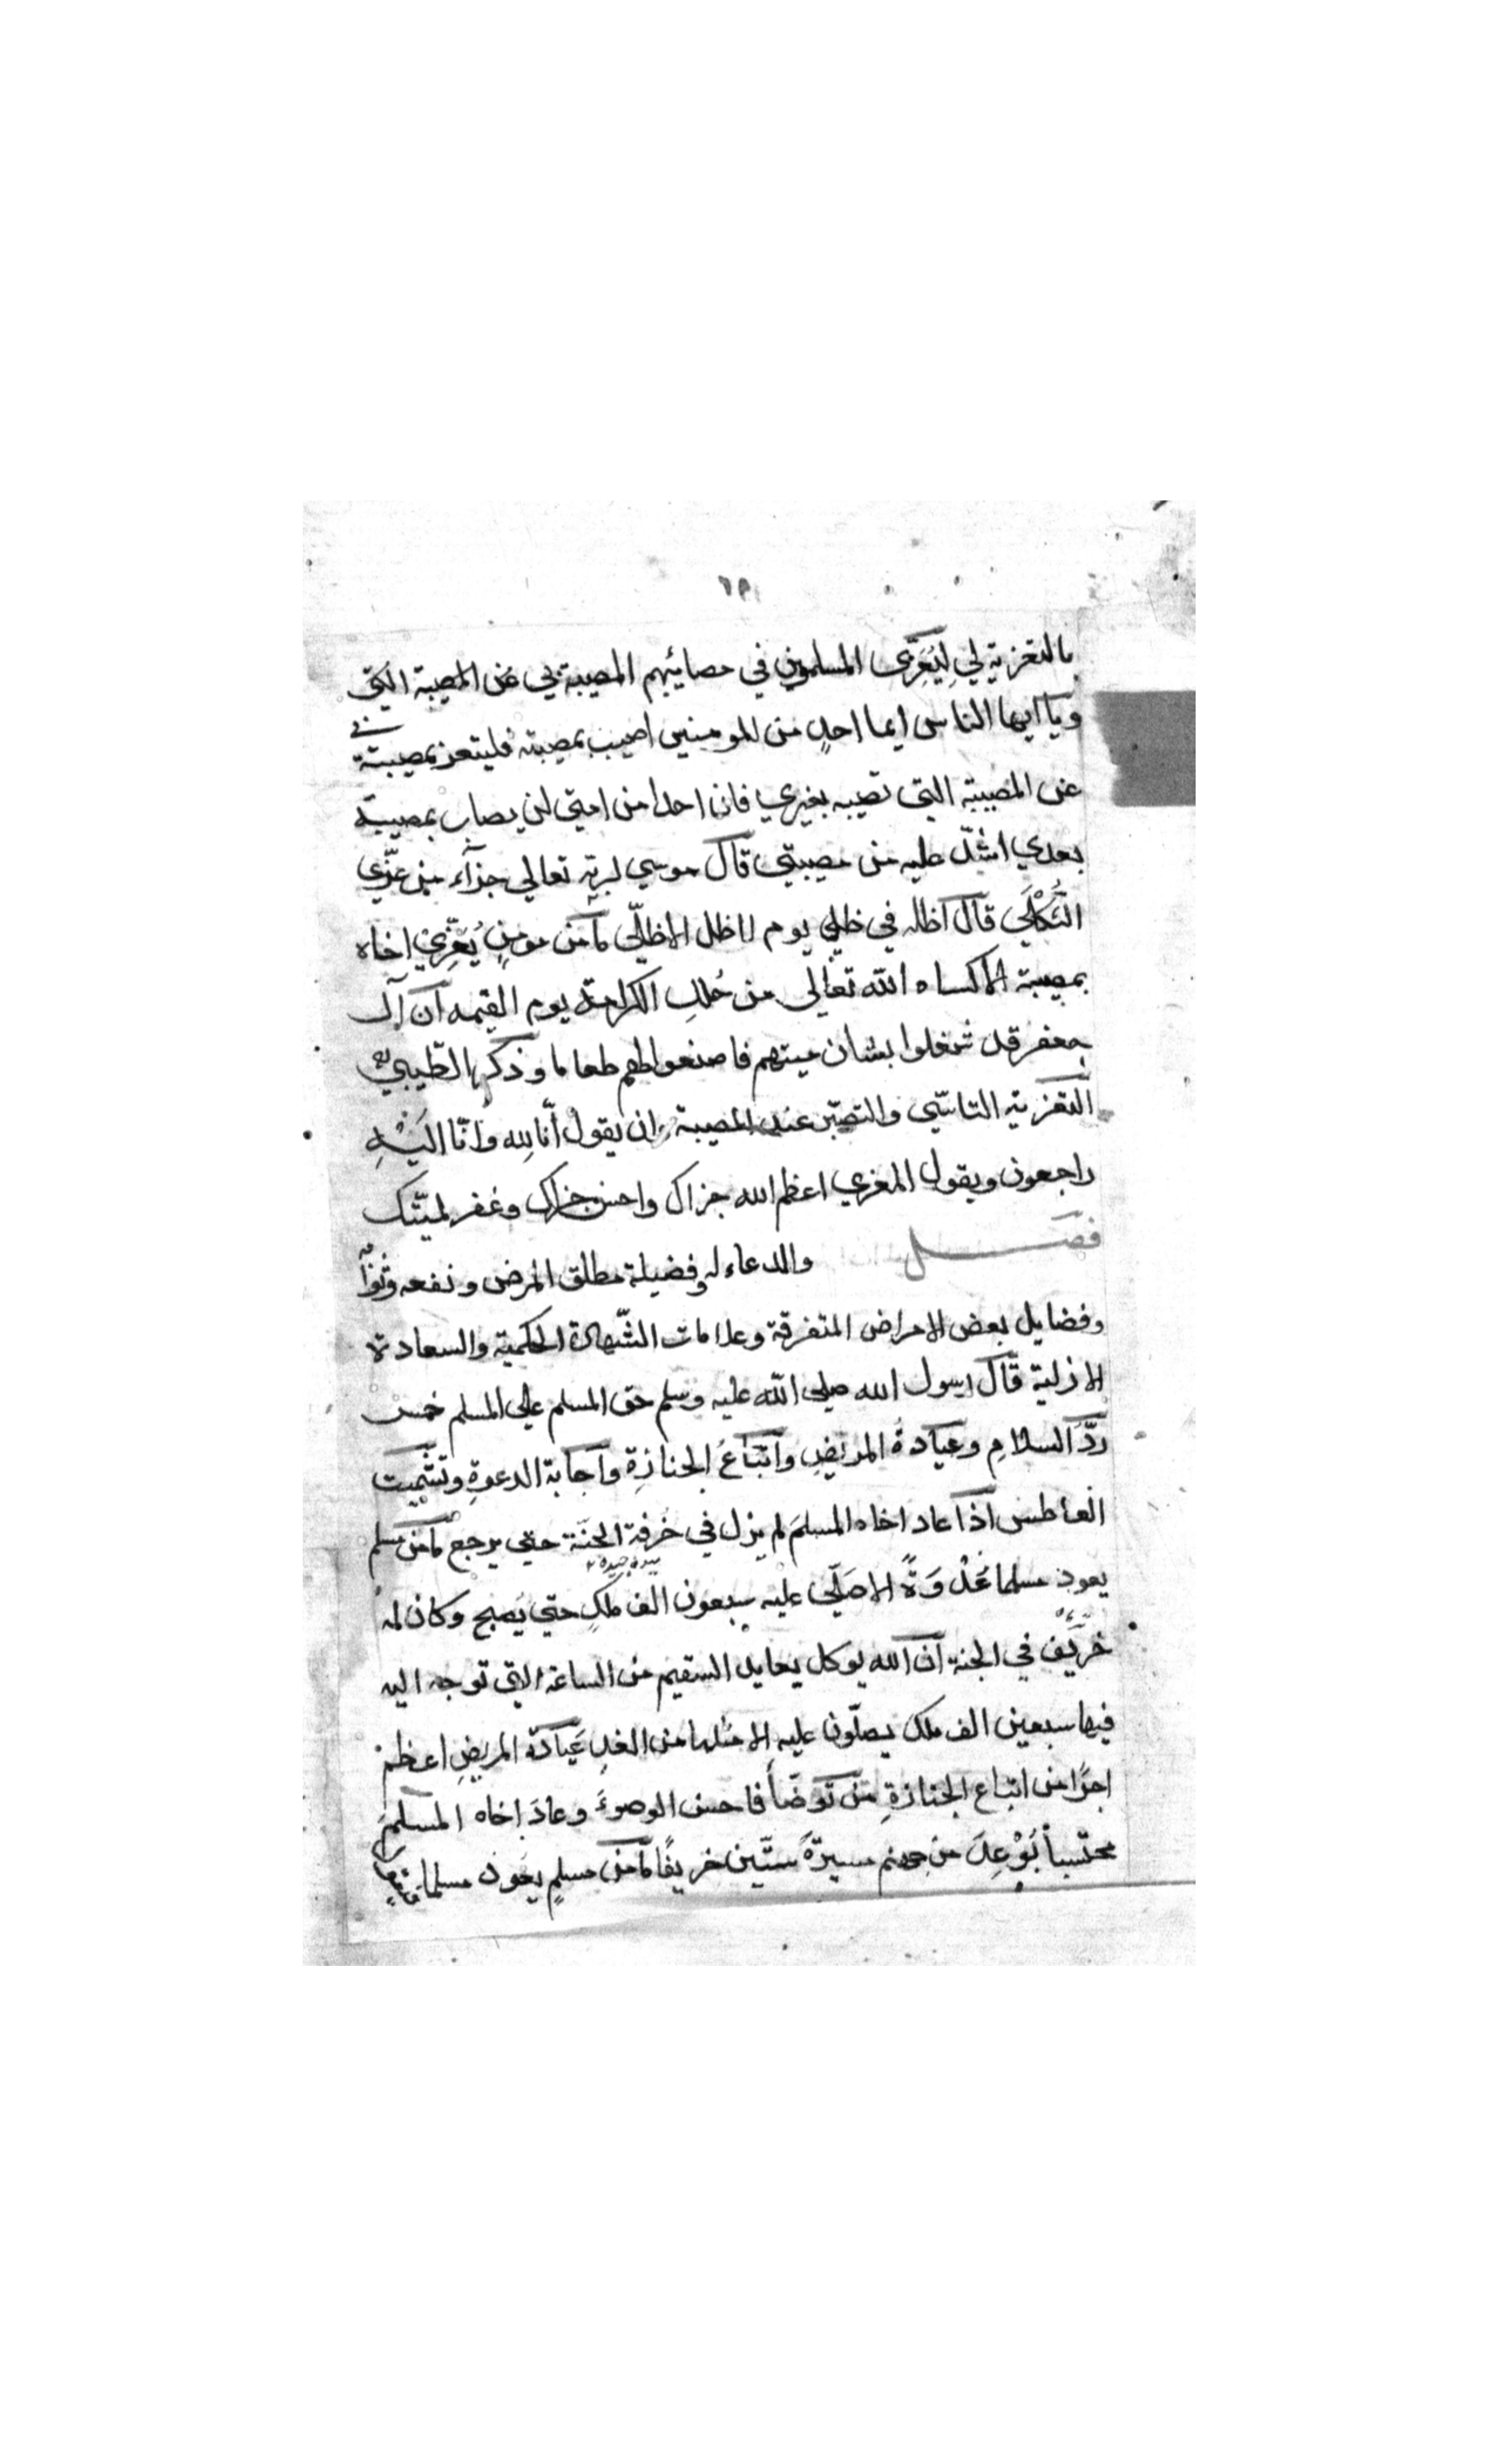 ٢٩١
بالتعزية لي ليُعَزّى المسلمون في مصائبهم المصيبة بي عن المصيبة التي
ويا ايها الناس ايما احدٍ من المومنين اصيب بمصيبة فليتعز بمصيبته بي
عن المصيبة التي تصيبه بغيري فان احدا من امتي لن يصاب بمصيبة
بعدي اشدّ عليه من مصيبتي قال موسي لربه تعالي ما جزآء من عزّي
الثَّكْلَي قال اظله في ظلي يوم لا ظل الا ظلّي مامن مومنٍ يُعَزِّي اخاه
بمصيبة الا كساه الله تعالي من حُللِ الكرامة يوم القيمه ان آل
جعفر قد شغلوا بشان ميتهم فاصنعوا لهم طعاما وذكر الطّيبي
التعزية التاسّي والتصبّر عند المصيبة وان يقول انّا لِله وانّا اليْهِ
راجعون ويقول المعزي اعظم الله جزاك واحسن عزاك وغفر لميّتك
فصل والدعاء له وفضيلة مطلق المرض ونفعه وثوابه
وفضايل بعض الامراض المتفرقة وعلامات الشّهادة الحكمية والسعادة
الازلية قال رسول الله صلى الله عليه وسلم حق المسلم علي المسلم خمس
ردّ السلامِ وعيادةُ المريضِ واتّباعُ الجنازةِ واجابة الدعوةِ وتشميت
العاطس اذا عاد اخاه المسلمَ لم يزل في خُرفة الجنّة حتي يرجع مامن مسلم
يعود مسلما غُدْوَةً الا صَلّي عليه سبعون الف ملكٍ حتي يُصبح وكان له
خريف في الجنة ان الله يوكل بعايد السقيم من الساعة التي توجه اليه
فيها سبعين الف ملك يصلّون عليه الا مثلها من الغدِ عيادة المريضِ اعظم
اجرًا من اتباع الجنازةِ من توضّأ فاحسن الوضوءَ وعادَ اخاه المسلمَ
محتسبا بُوْعِدَ من جهنم مسيرةَ ستّين خريفًا مامن مسلمٍ يعود مسلما